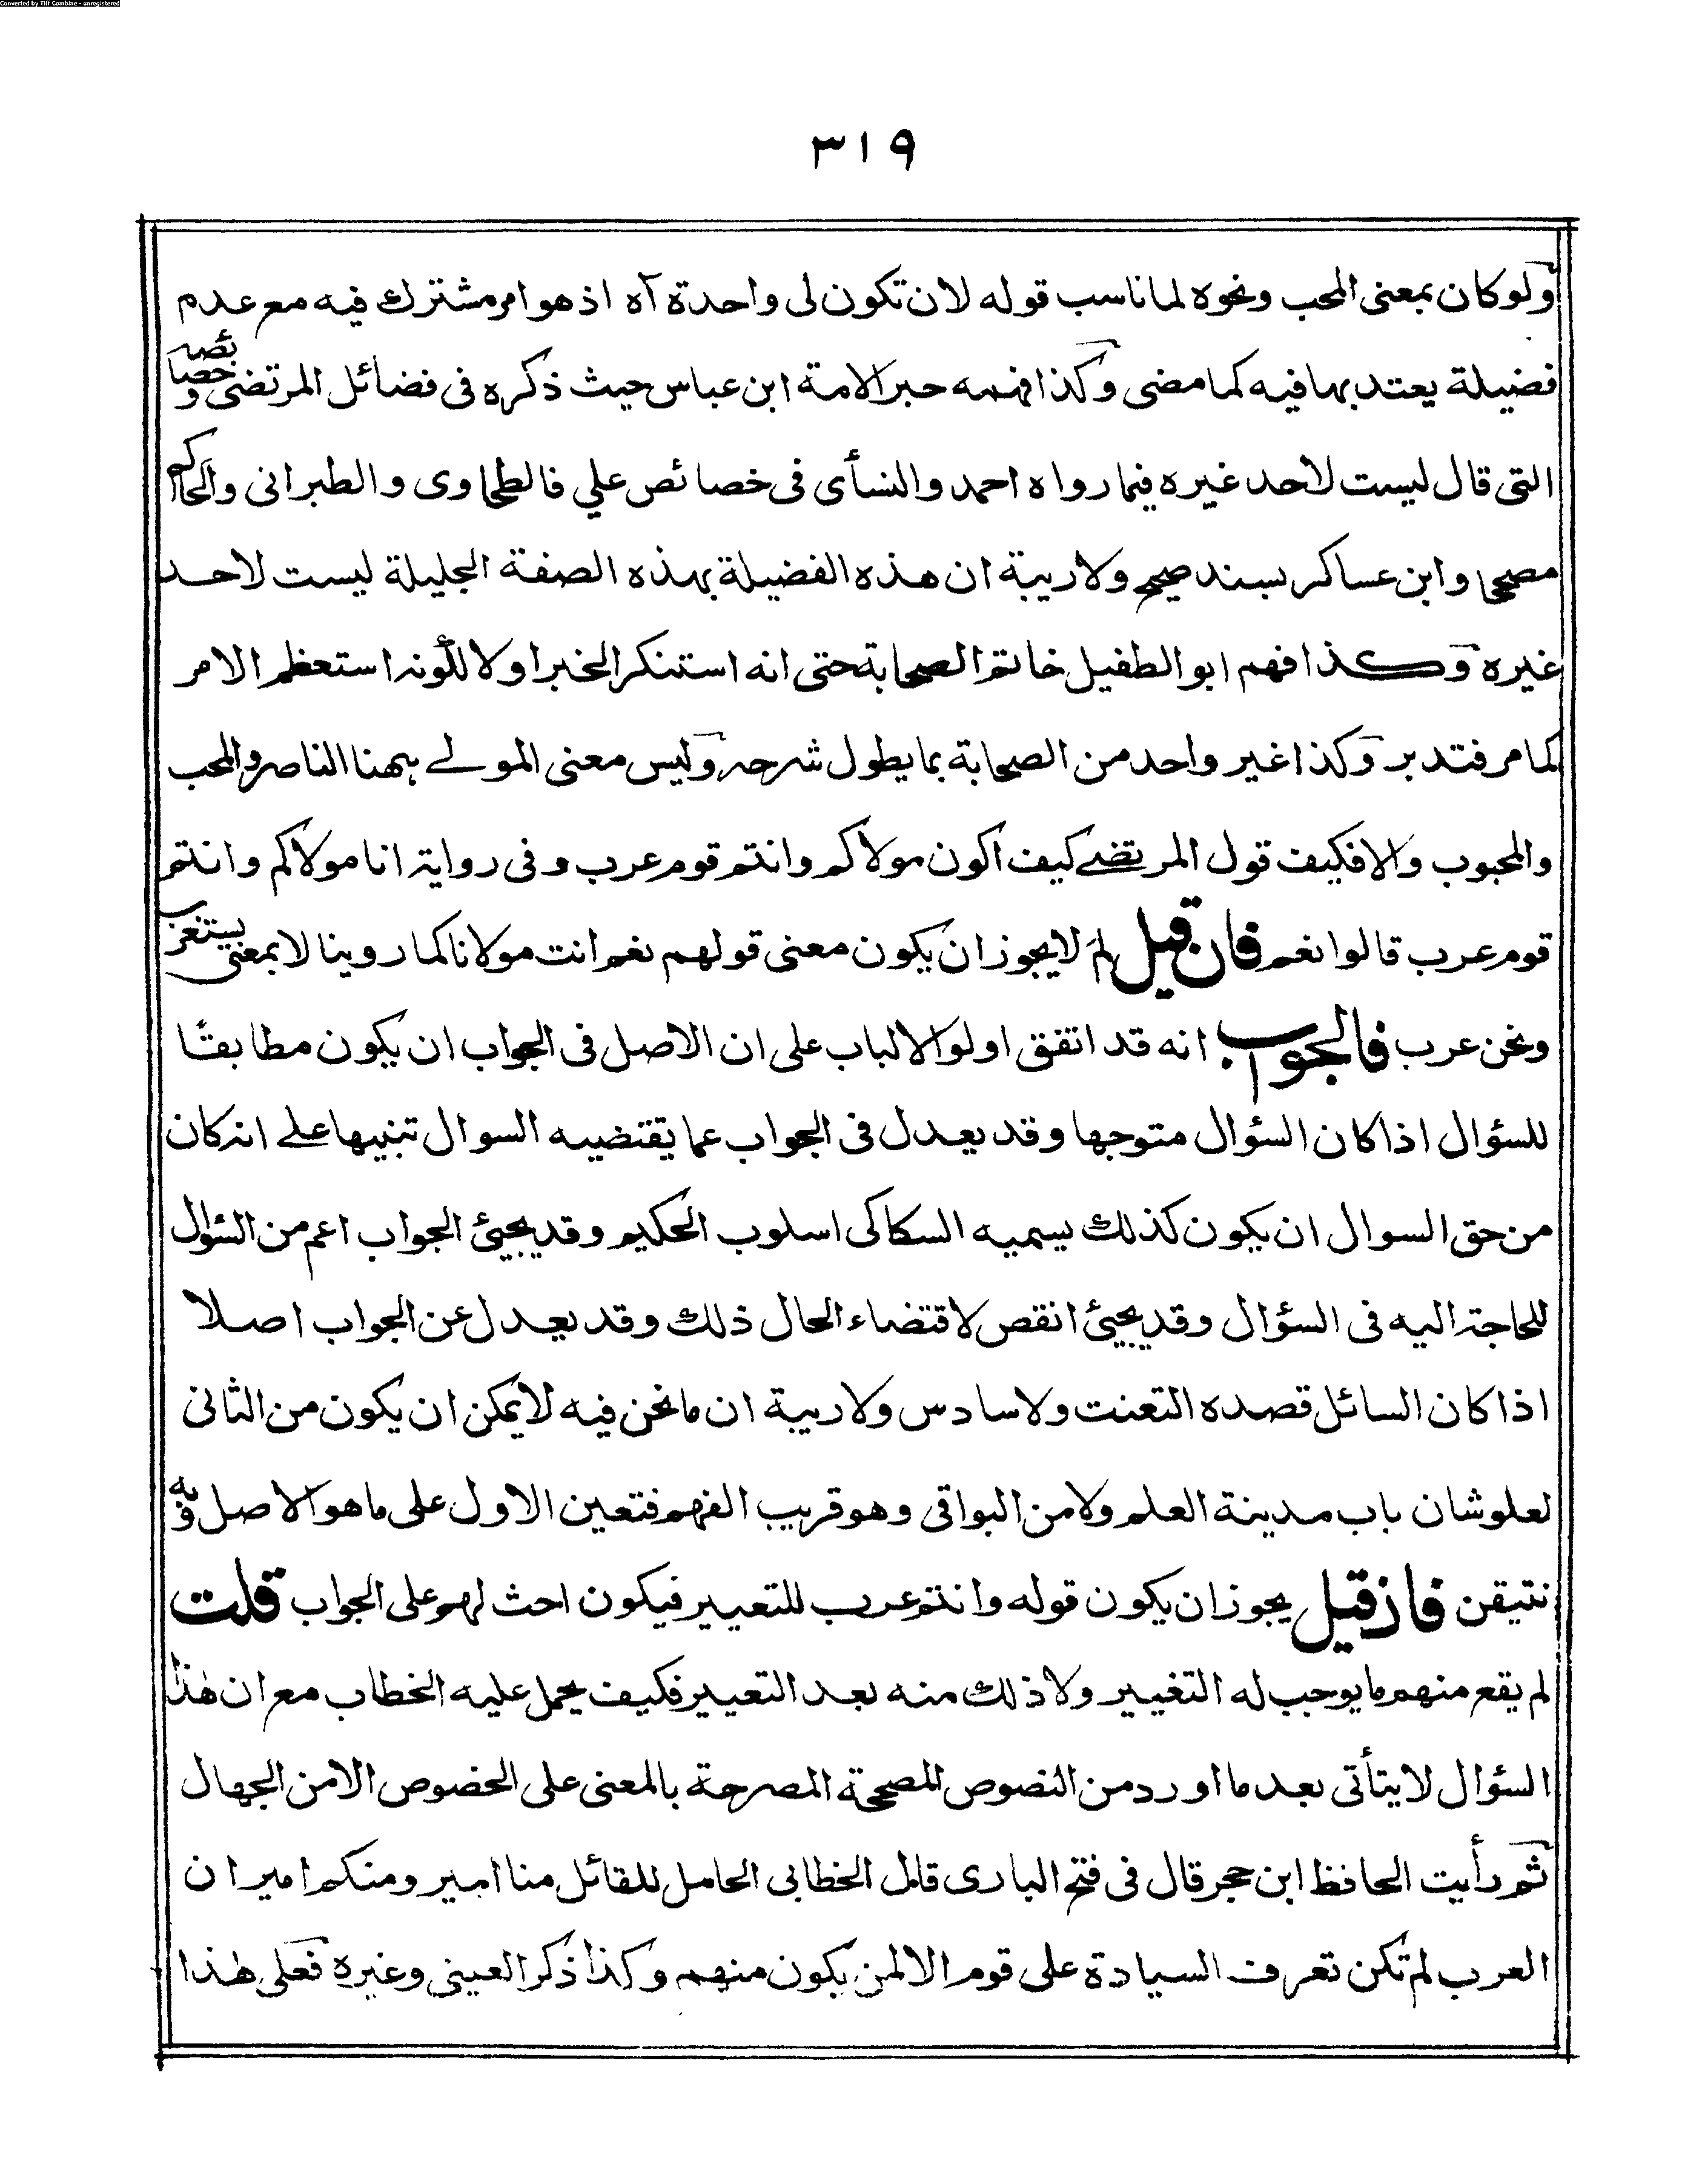 Converted by Tiff Combine - unregistered
٣١٩
ولو كان بمعنى المحب ونحوه لما ناسب قوله لان تكون لى واحدة آه اذ هو امر مشترك فيه مع عدم
فضيلة يعتد بها فيه كما مضى وكذا فهمه حبر الامة ابن عباس حيث ذكره فى فضائل المرتضى وخصائصه
التى قال ليست لاحد غيره فيما رواه احمد والنسأى فى خصائص علي فالطحاوى والطبرانى والحاكم
مصححا وابن عساكر بسند صحيح ولا ريبة ان هذه الفضيلة بهذه الصفة الجليلة ليست لاحد
غيره وكذا فهم ابو الطفيل خاتم الصحابة حتى انه استنكر الخبر اولا لكونه استعظم الامر
كما مر فتدبر وكذا غير واحد من الصحابة بما يطول شرحه وليس معنى المولے بهنا الناصر والمحب
والمحبوب والا فكيف قول المرتضے كيف اكون مولاكم وانتم قوم عرب وفى رواية انا مولاكم وانتم
قوم عرب قالوا نعم فان قيل لم لا يجوز ان يكون معنى قولهم نعم انت مولانا كما روينا لا بمعنى يستغرب
ونحن عرب فالجواب انه قد اتفق اولو الالباب على ان الاصل فى الجواب ان يكون مطابقًا
للسؤال اذا كان السؤال متوجها وقد يعدل فى الجواب عما يقتضيه السوال تنبيها علے انه كان
من حق السوال ان يكون كذلك يسميه السكاكى اسلوب الحكيم وقد يجيئ الجواب اعم من السؤال
للحاجة اليه فى السؤال وقد يجيئ انقص لاقتضاء الحال ذلك وقد يعدل عن الجواب اصلا
اذا كان السائل قصده التعنت ولا سادس ولا ريبة ان ما نحن فيه لا يمكن ان يكون من الثانى
لعلو شان باب مدينة العلم ولا من البواقى وهو قريب الفهم فتعين الاول على ما هو الاصل وبه
نتيقن فان قيل يجوز ان يكون قوله وانتم عرب للتعيير فيكون احث لهم على الجواب قلت
لم يقع منهم ما يوجب له التغيير ولا ذلك منه بعد التعيير فكيف يحمل عليه الخطاب مع ان هذا
السؤال لا يتأتى بعد ما اورد من النصوص المصححة المصرحة بالمعنى على الخصوص الا من الجهال
ثم رأيت الحافظ ابن حجر قال فى فتح البارى قال الخطابى الحامل للقائل منا امير ومنكم امير ان
العرب لم تكن تعرف السيادة على قوم الا لمن يكون منهم وكذا ذكر العينى وغيره فعلى هذا